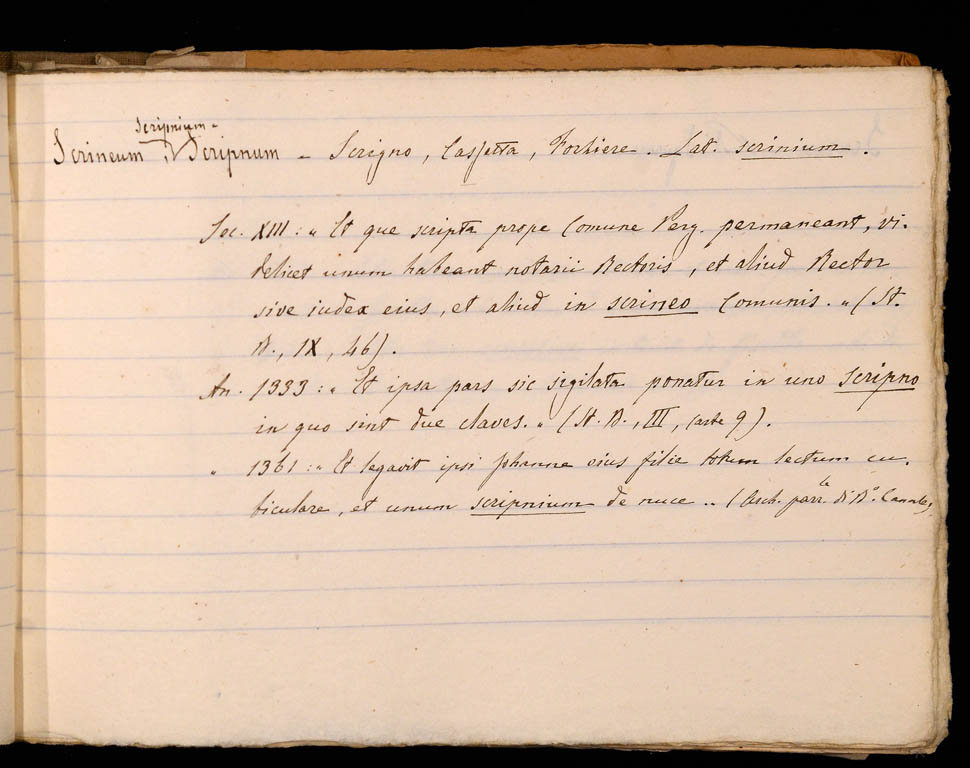 Scripnium -
Scrineum, Scripnum - Scrigno, Cassetta, Forziere. Lat. scrinium.
Sec. XIII: " Et que scripta prope Comune Perg. permaneant, vi-
delicet unum habeant notarii Rectoris, et aliud Rector
sive iudex eius, et aliud in scrineo Comunis. " (St.
B., IX, 46).
An. 1333: " Et ipsa pars sic sigilata ponatur in uno scripno
in quo sint due claves. " (St. B., III, carte 9).
" 1361: " Et legavit ipsi Johanne eius filie totum lectum cu-
biculare, et unum scripnium de nuce .. (Arch. parr.le di B.o